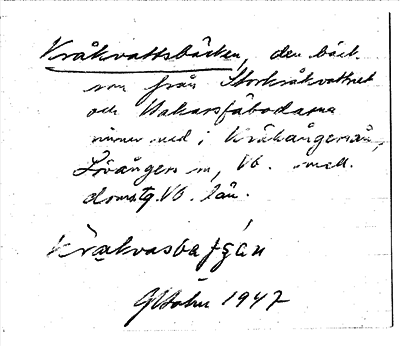 Kråkvattsbäcken, den bäck
som från Storkråkvattnet
och Vakarsfäbodarna
rinner ned i Kråkångersån,
Lövångers sn, Vb. 
domsg. Vb. län.
Kråkvasbäʃʒán
1947